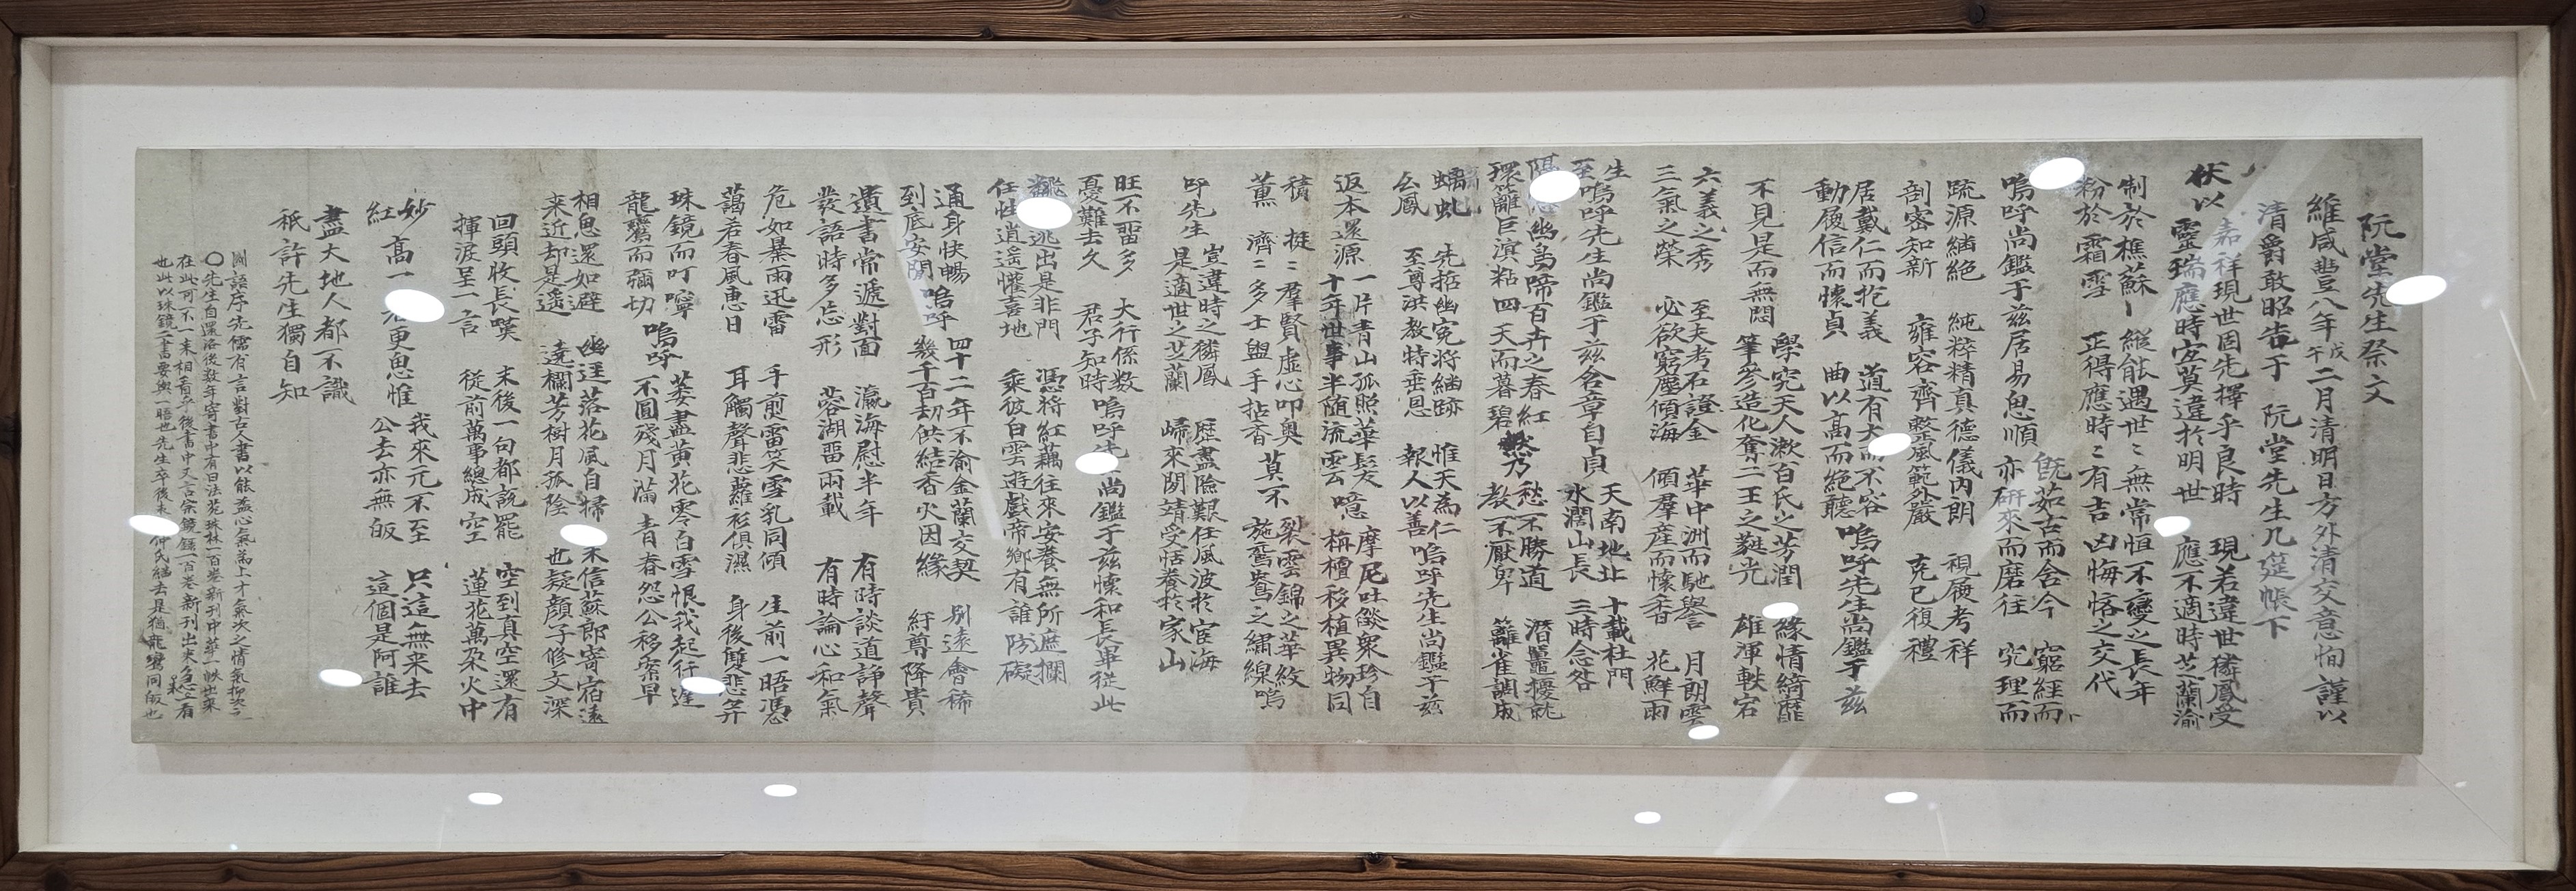 阮堂先生祭文
維咸豊八年戊午二月清明日方外清交意恂謹以
清爵敢昭告于 阮堂先生几筵帳下
伏以
嘉祥現世固先擇乎良時 現若違世猉鳳受
靈瑞應時安莫違於明世 應不適時芝蘭渝
制於樵蘇 縱能遇世世無常恒不變之長年
粉於霜雪 正得應時時有吉凶悔悋之交代
嗚呼尚鑑于玆居易思順
既茹古而含今 窮經而
亦研來而磨往 究理而
疏源緬絶 純粹精真德儀內朗 視履考祥
剖密知新 雍容齊整風範外嚴 克已復禮
居戴仁而抱義 道有大而不容
動履信而懷貞 曲以高而絶聽
嗚呼先生尚鑑于玆
不見是而無悶
學究天人漱百氏之芳潤 緣情綺靡
筆參造化奪二王之蕤光 雄渾軼宕
六義之秀 至夫考石證金 華中洲而馳譽 月朗雲
三氣之榮 必欲窮塵傾海 傾羣産而懷香 花鮮雨
生
至
嗚呼先生尚鑑于玆含章自貞
天南地北 十載杜門
水濶山長 三時念咎
幽鳥啼百卉之春紅 愁不勝道 潛鼉擾就
環籬巨濱粘四天而暮碧 乃教不厭卑 籬雀調成
螭虬 先摭幽寃將緬跡 惟天爲仁
幺鳳 至尊洪教特垂恩 報人以善
嗚呼先生尚鑑于玆
返本還源
一片青山孤照華髮 摩尼吐燄衆珍自
十年世事半随流雲 噫 栴檀移植異物同
積 挺挺羣賢虛心叩奥 裂雲錦之華紋
薫 濟濟多士盥手拈香 莫不 施鴛鴦之繡線
嗚
呼先生
豈違時之猉鳳 歴盡險艱任風波於宦海
是適世之芝蘭 歸來閑靖受恬養於家山
旺不畱多 大行係数
憂難去久 君子知時
嗚呼先生尚鑑于玆懷和長畢從此
逃出是非門 憑將紅藕往來安養無所遮攔
任性逍遥懽喜地 乘彼白雲遊戱帝鄉有誰防礙
通身快暢 嗚呼 四十二年不渝金蘭交契 別遠會稀
到底安閒 幾千百劫供結香火因緣 紆尊降貴
遺書常遞對面 瀛海慰半年 有時談道諍聲
發語時多忘形 蓉湖畱兩載 有時論心和氣
危如暴雨迅雷 手煎雷笑雪乳同傾 生前一晤憑
藹若春風惠日 耳觸聲悲蘿衫俱濕 身後雙悲筭
珠鏡而叮嚀 嗚呼 萎盡黄花零白雪恨我起行遲
龍鸞而彌切 不圓殘月滿青春怨公移案早
相思還如避 幽逕落花風自掃 未信蘇郎寄宿遠
来近却是遥 遶欄芳樹月孤陰 也疑顔子修文深
回頭收長嘆 末後一句都說罷 空到真空還有
揮淚呈一言 従前萬事總成空 蓮花萬朶火中
妙 高一 更思惟 我來元不至 只這無来去
紅 公去亦無皈 這個是阿誰
盡大地人都不識
祇許先生獨自知
國語序先儒有言對古人書以能盡心氣爲上才氣次之情氣抑次之
〇先生自還洛後数年寄書中有曰法苑珠林一百卷新刊中華一帙出來
在此可不一来相看乎後書中又言宗鏡錄一百卷新刊出来急来看
也此以珠鏡二書要與一晤也先生卒後 仲氏継去是猶龍鸞同皈也